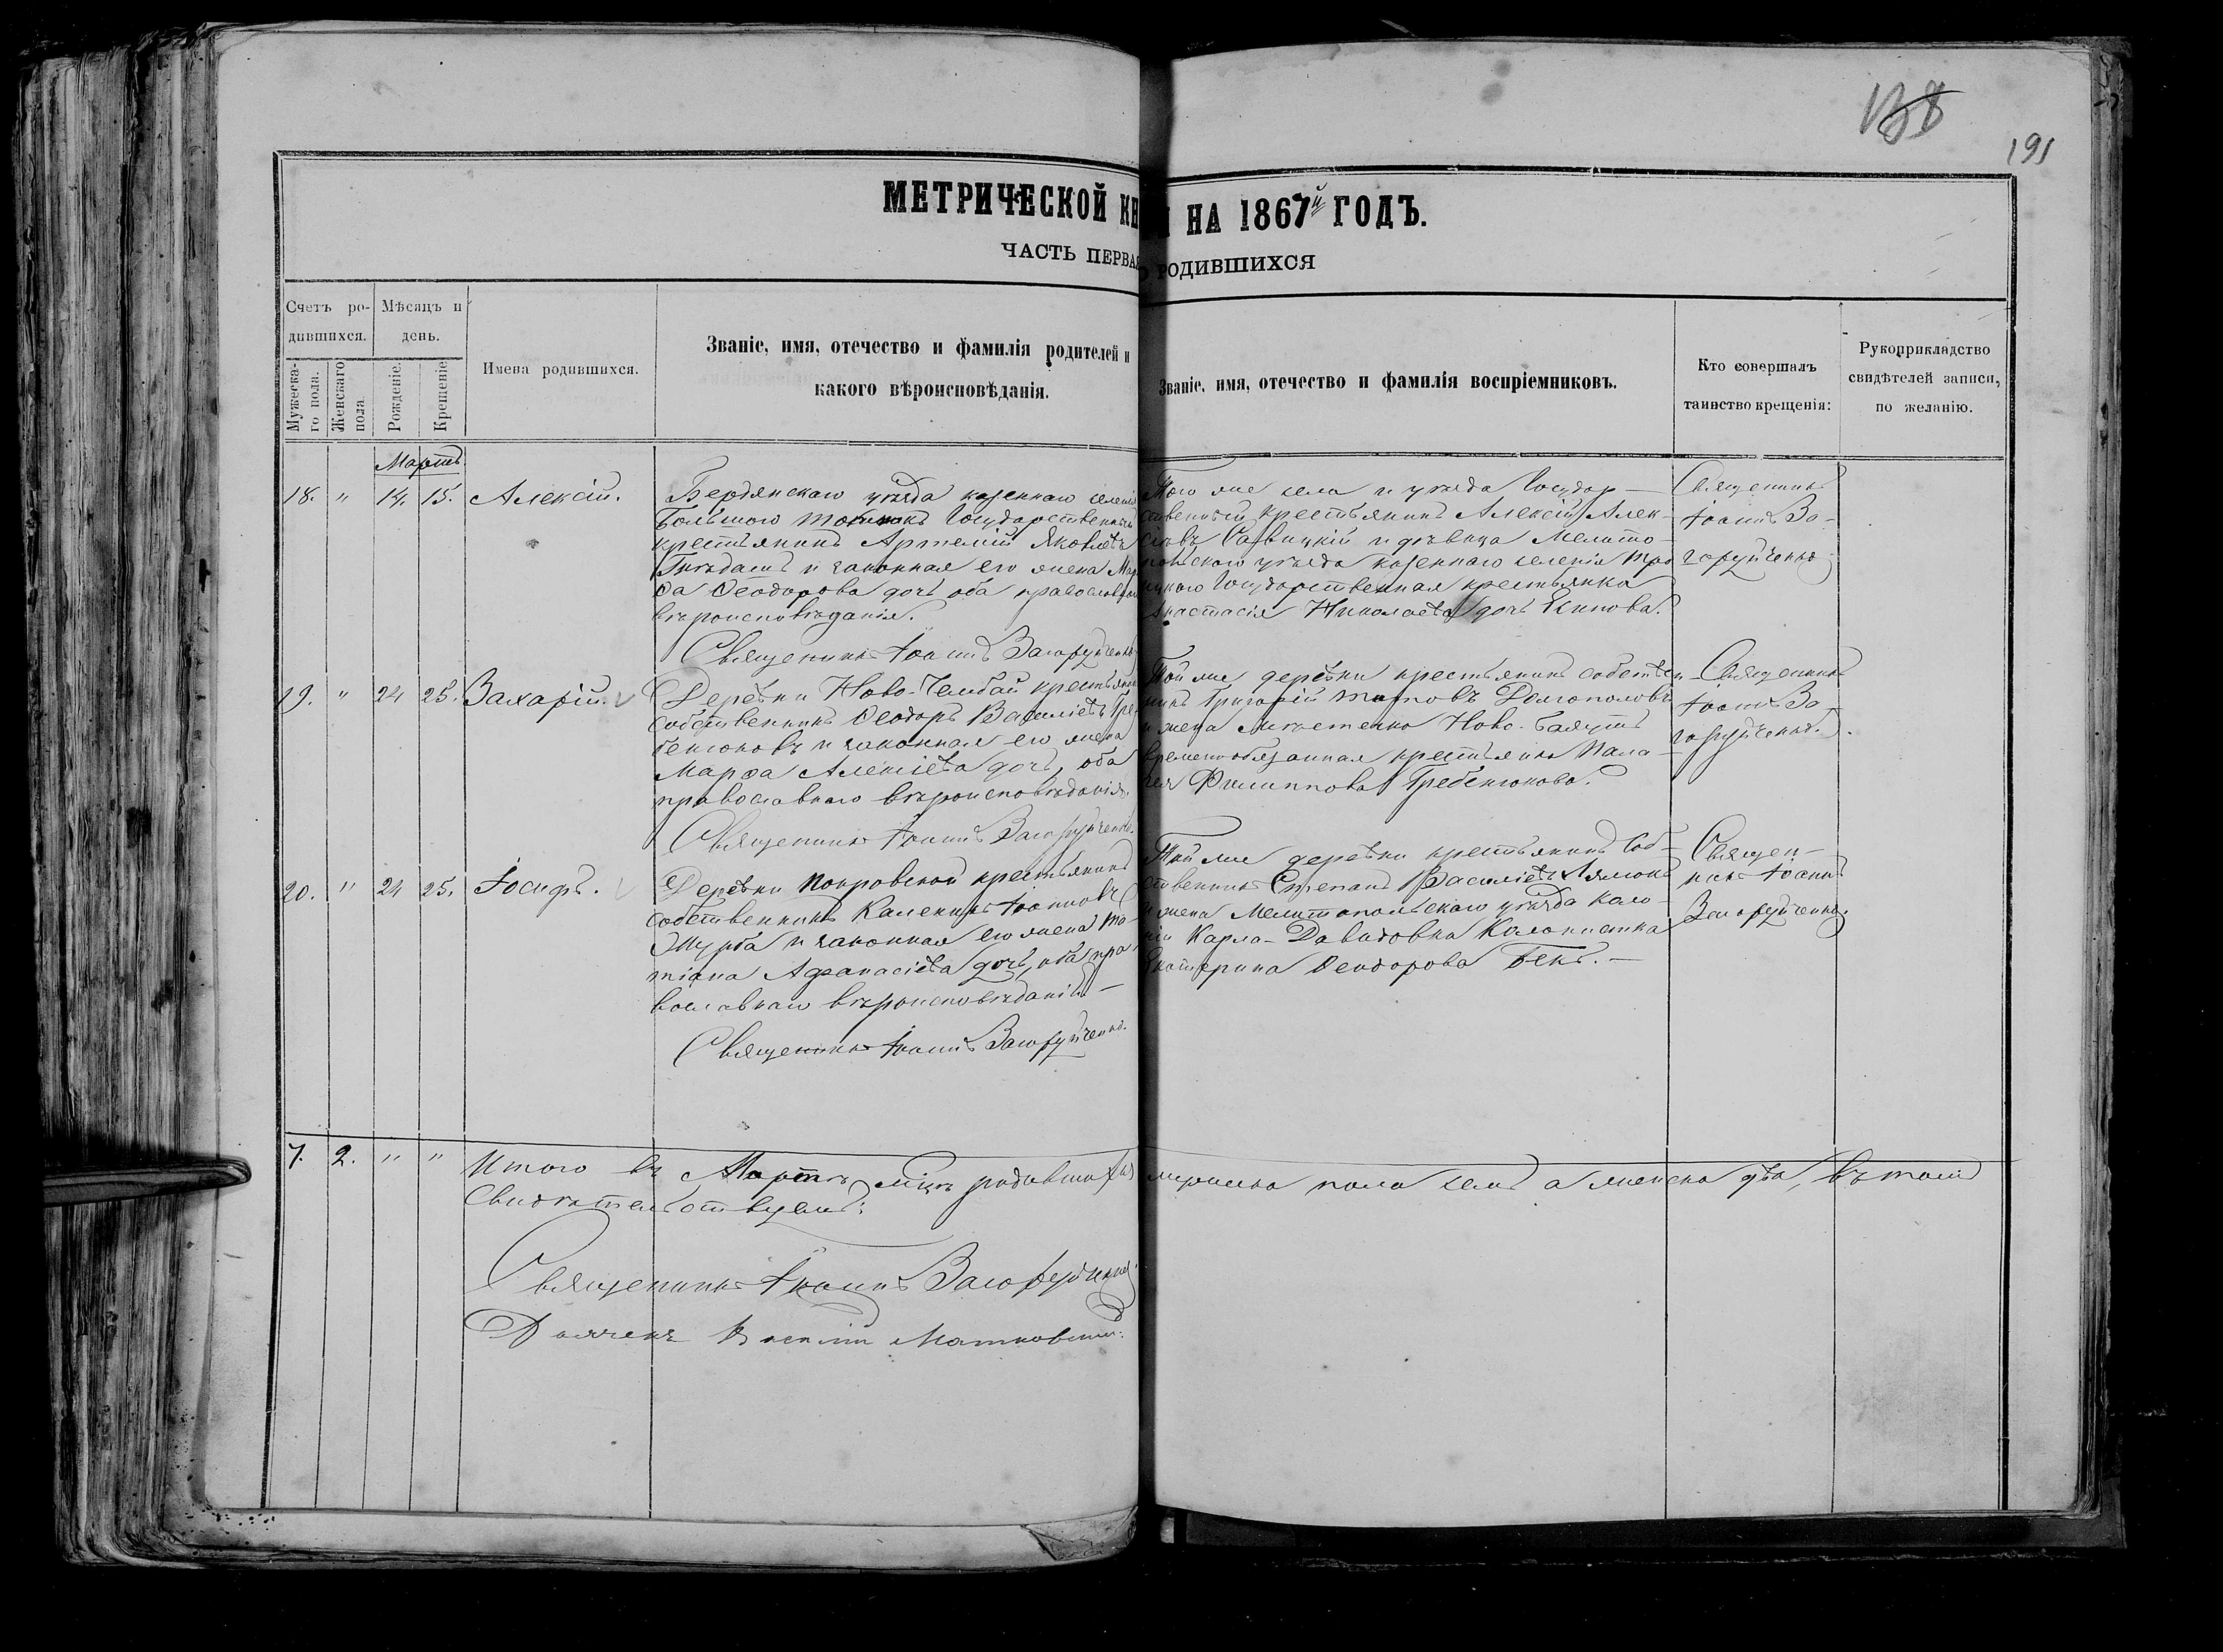 191
МЕТРИЧЕСКОЙ КН И НА 1867й ГОДЪ.
ЧАСТЬ ПЕРВАЯ О РОДИВШИХСЯ
Счетъ ро-
дившихся.
Мужеска-
го пола.
Женскаго
пола.
Мѣсяцъ и
день.
Рожденіе.
Крещеніе.
Имена родившихся.
Званіе, имя, отечество и фамилія родителей и
какого вѣроисповѣданія.
Званіе, имя, отечество и фамилія воспріемниковъ.
Кто совершалъ
таинство крещенія:
Рукоприкладство
свидѣтелей записи,
по желанію.
Мартъ
18. " 14. 15. Алексій.
Бердянскаго уѣзда казеннаго селенія
Большого Токмакъ Государственный
крестьянинъ Артемій Яковлевъ
и законная его жена
Ѳеодорова дочь оба православнаго
вѣроисповѣданія.
Священникъ Іоаннъ Загоруйченко
Того же села и уѣзда Государ-
ственный крестьянинъ Алексій Алек-
сѣевъ Савицкій и дѣвица Мелито-
польскаго уѣзда казеннаго селенія Тро
ицкаго Государственная крестьянка
Анастасія Николаева дочь
Священникъ
Іоаннъ За-
горуйченко
19. " 24 25. Захарій.
Деревни Ново-Челбай крестьянинъ
собственникъ Ѳеодоръ Василіевъ Гре-
бенюковъ и законная его жена
Марѳа Алексіева дочь, оба
православнаго вѣроисповѣданія.
Священникъ Іоаннъ Загоруйченко.
Той же деревни крестьянинъ собствен
никъ Григорій Долгополовъ
и жена Ново-
временнообязанная крестьянка Пала-
гея Филиппова Гребенюкова.
Священникъ
Іоаннъ За-
горуйченко.
20. " 24 25. Іосифъ.
Деревни Покровской крестьянинъ
собственникъ Каленикъ Іоанновъ
Журба и законная его жена Та-
тіана Аѳанасіева дочь, оба пра-
вославнаго вѣроисповѣданія-
Священникъ Іоаннъ Загоруйченко.
Той же деревни крестьянинъ Соб-
ственникъ Степанъ Василіевъ
и жена Мелитопольскаго уѣзда коло-
ніи Карла-Давидовна Колонистка
Екатерина Ѳеодорова Бекъ.-
Священ-
никъ Іоаннъ
Загоруйченко.
7. 2. " " Итого въ Мартѣ мцѣ родившихся мужеска пола семь а женска два, въ томъ
свидѣтельствуемъ:
Священникъ Іоаннъ Загоруйченко
Дьячекъ Василій Матковскій.